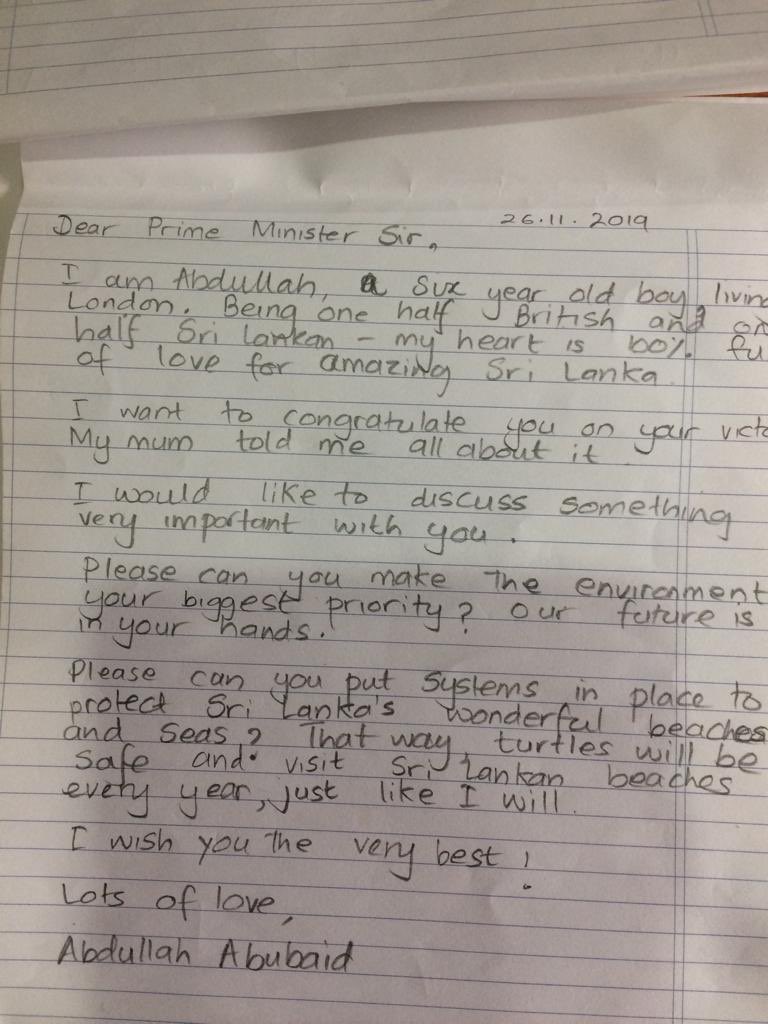 26.11.2019
Dear Prime Minister Sir,
I am Abdullah, a six year old boy, living
London. Being one half British and
half Sri Lankan - my heart is 100%
of love for amazing Sri Lanka
I want to congratulate you on your
My mum told me all about it
I would like to discuss something
very important with you.
Please can you make the environment
your biggest priority? Our future is
in your hands.
Please can you put systems in place to
protect Sri Lanka's wonderful beaches
and seas? That way, turtles will be
safe and visit Sri Lankan beaches
every year, just like I will.
I wish you the very best!
Lots of love,
Abdullah Abubaid